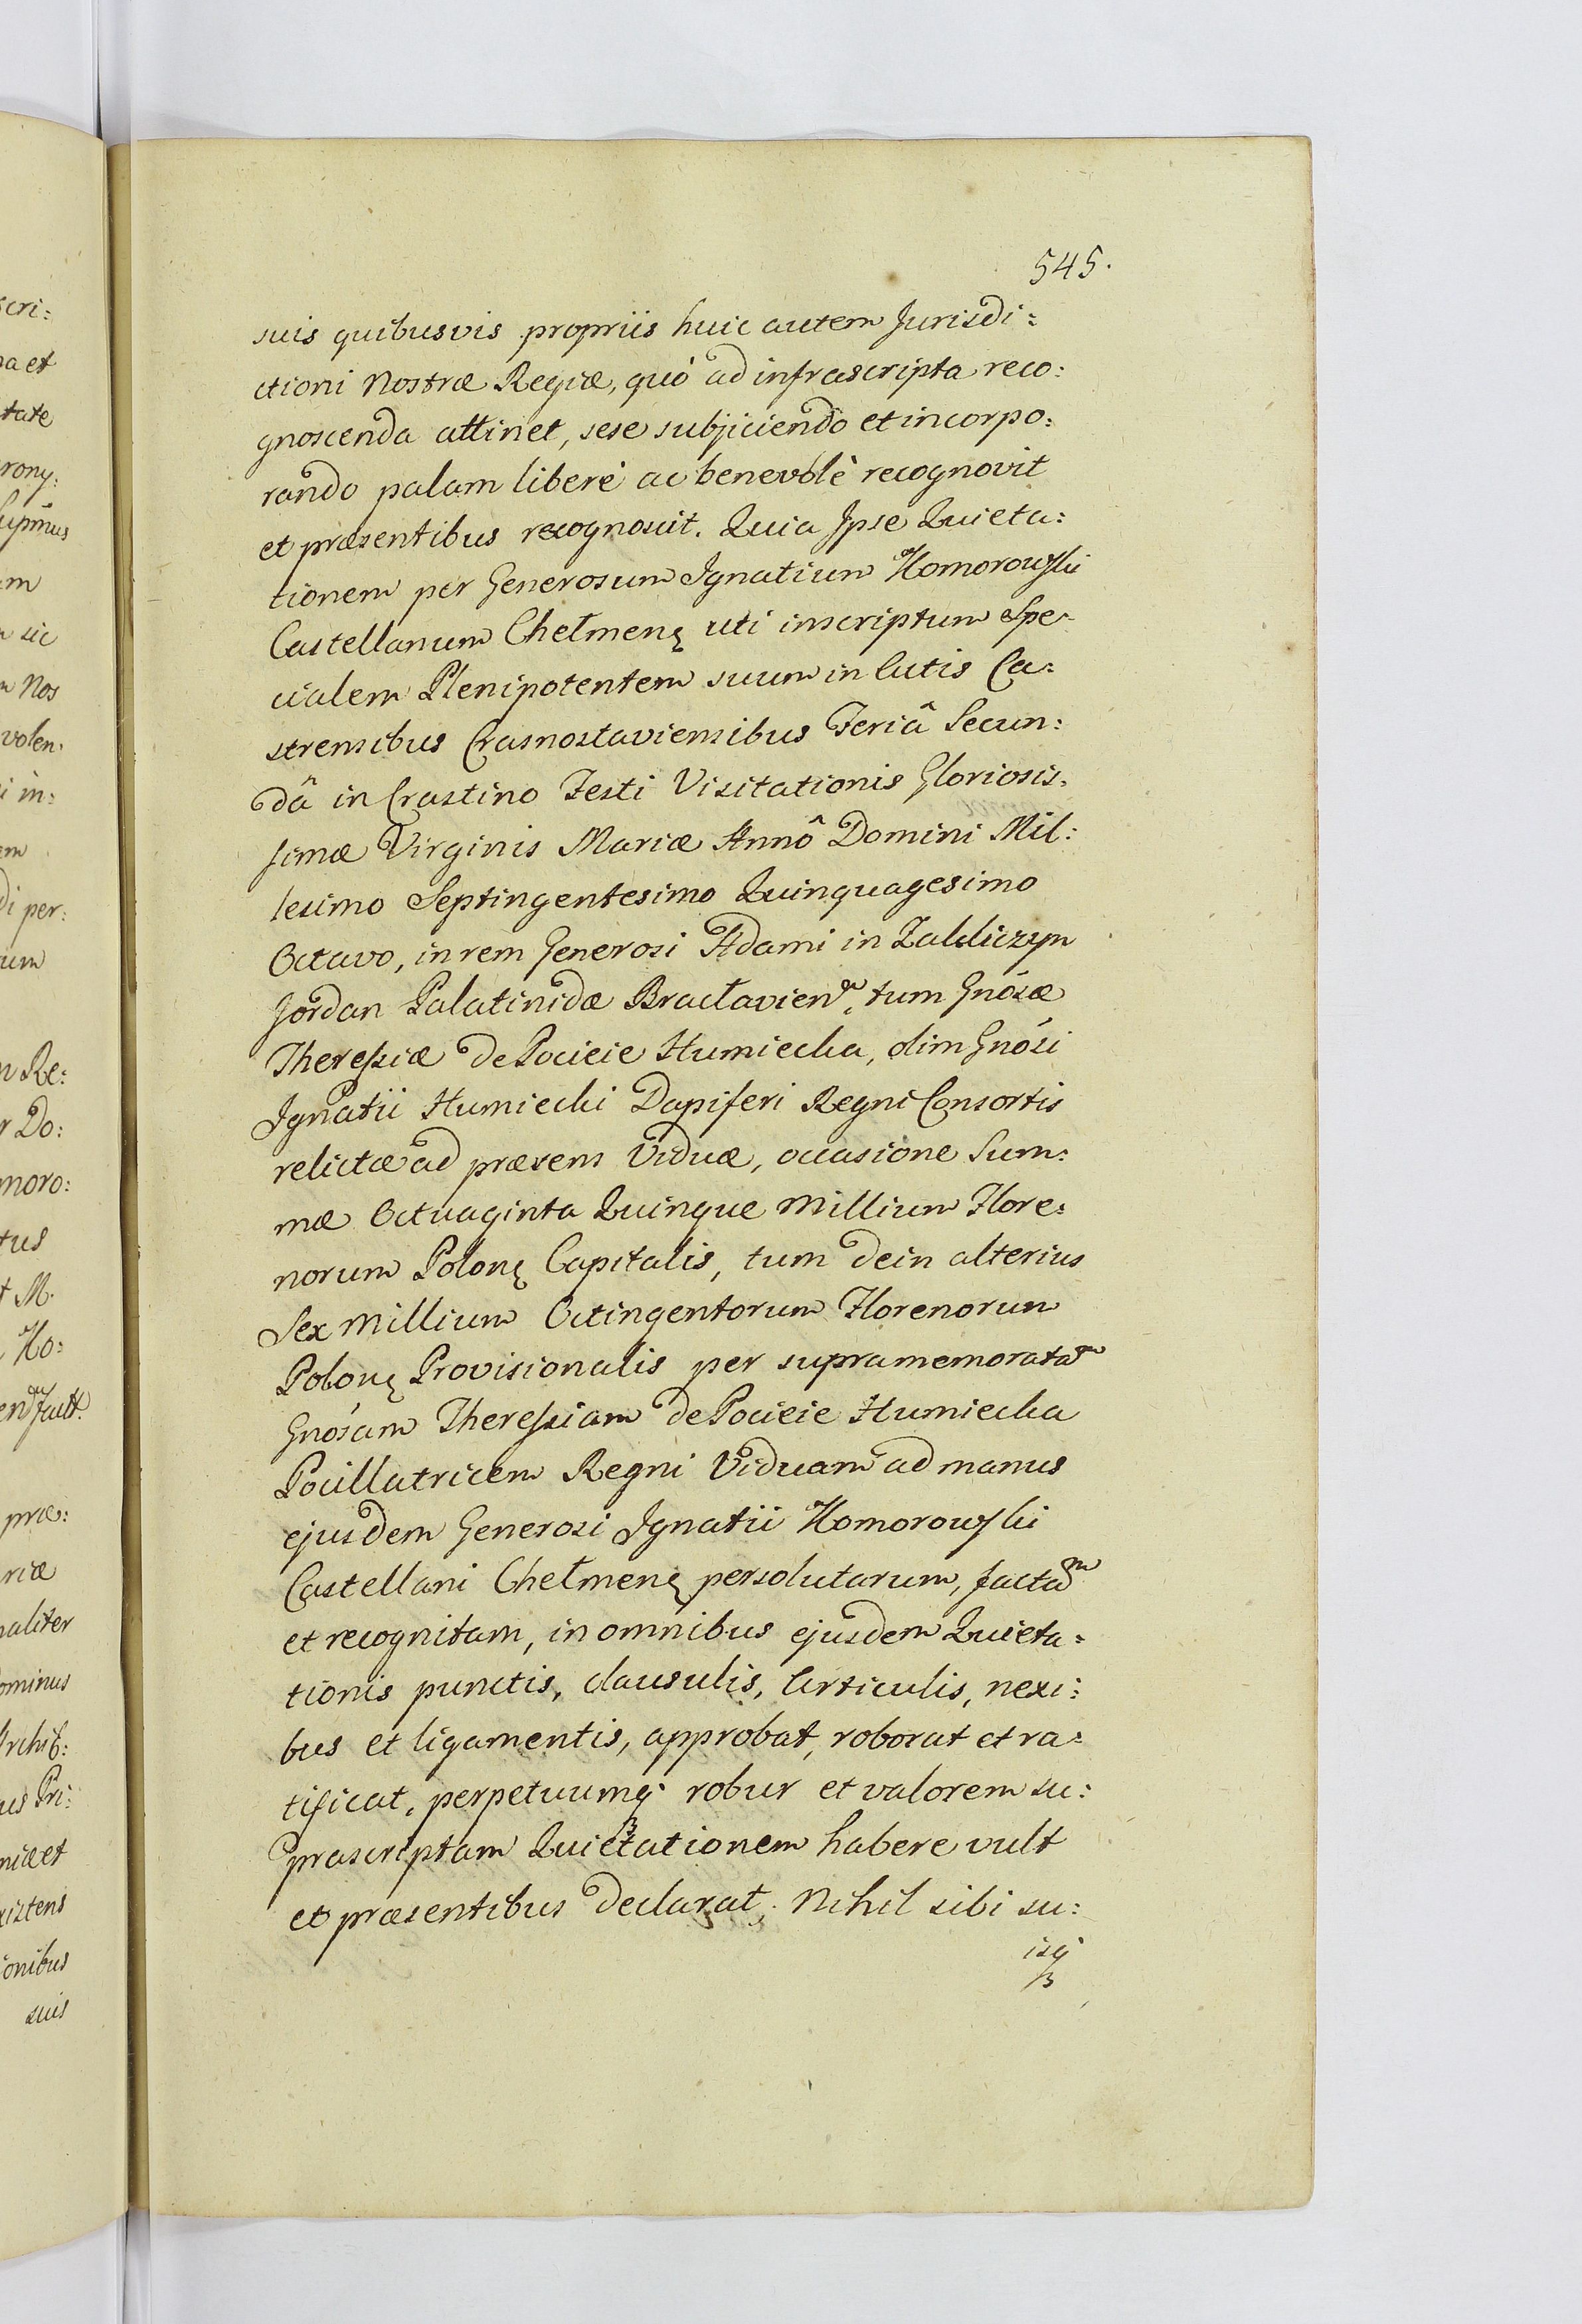 545.
suis quibusvis propriis huic autem Jurisdi:
ctioni Nostræ Regiæ, quò ad infrascripta reco:
gnoscenda attinet, sese subjiciendo et incorpo:
rando palam liberè ac benevolè recognovit
et præsentibus recognoscit. Quia Ipse Quieta:
tionem per Generosum Ignatium Komorowski
Castellanum Chełmenę uti inscriptum Spe-
cialem Plenipotentem suum in Actis Ca:
strensibus Crasnostaviensibus Feriâ Secun:
dâ in Crastino Festi Visitationis Gloriosis.
simæ Virginis Mariæ Annô Domini Mil:
lesimo Septingentesimo Quinquagesimo
Octavo, in rem Generosi Adami in Zakliczyn
Jordan Palatinidæ Bracłavien, tum Gnósæ
Theressiæ de Pocieie Humiecka, olim Gnósi
Ignatii Humiecki Dapiferi Regni Consortis
relictæ ad præsens Viduæ, occasione Sum:
mæ Octuaginta Quinque Millium Flore:
norum Polonę Capitalis, tum dein alterius
Sex Millium Octingentorum Florenorum
Polonę Provisionalis per supramemoratam
Gnósam Theressiam de Pocieie Humiecka
Pocillatricem Regni Viduam ad manus
ejusdem Generosi Ignatii Komorowski
Castellani Chełmenę persolutarum, factam
et recognitam, in omnibus ejusdem Quieta:
tionis punctis, clausulis, Articulis, nexi:
bus et ligamentis, approbat, roborat et ra:
tificat, perpetuumq́ robur et valorem su:
prascriptam Quietationem habere vult
et præsentibus declarat; Nihil sibi su:
isq́